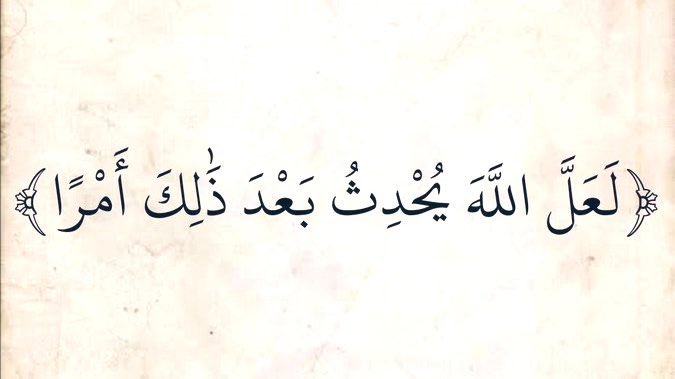 ﴿لَعَلَّ اللَّهَ يُحْدِثُ بَعْدَ ذَٰلِكَ أَمْرًا﴾